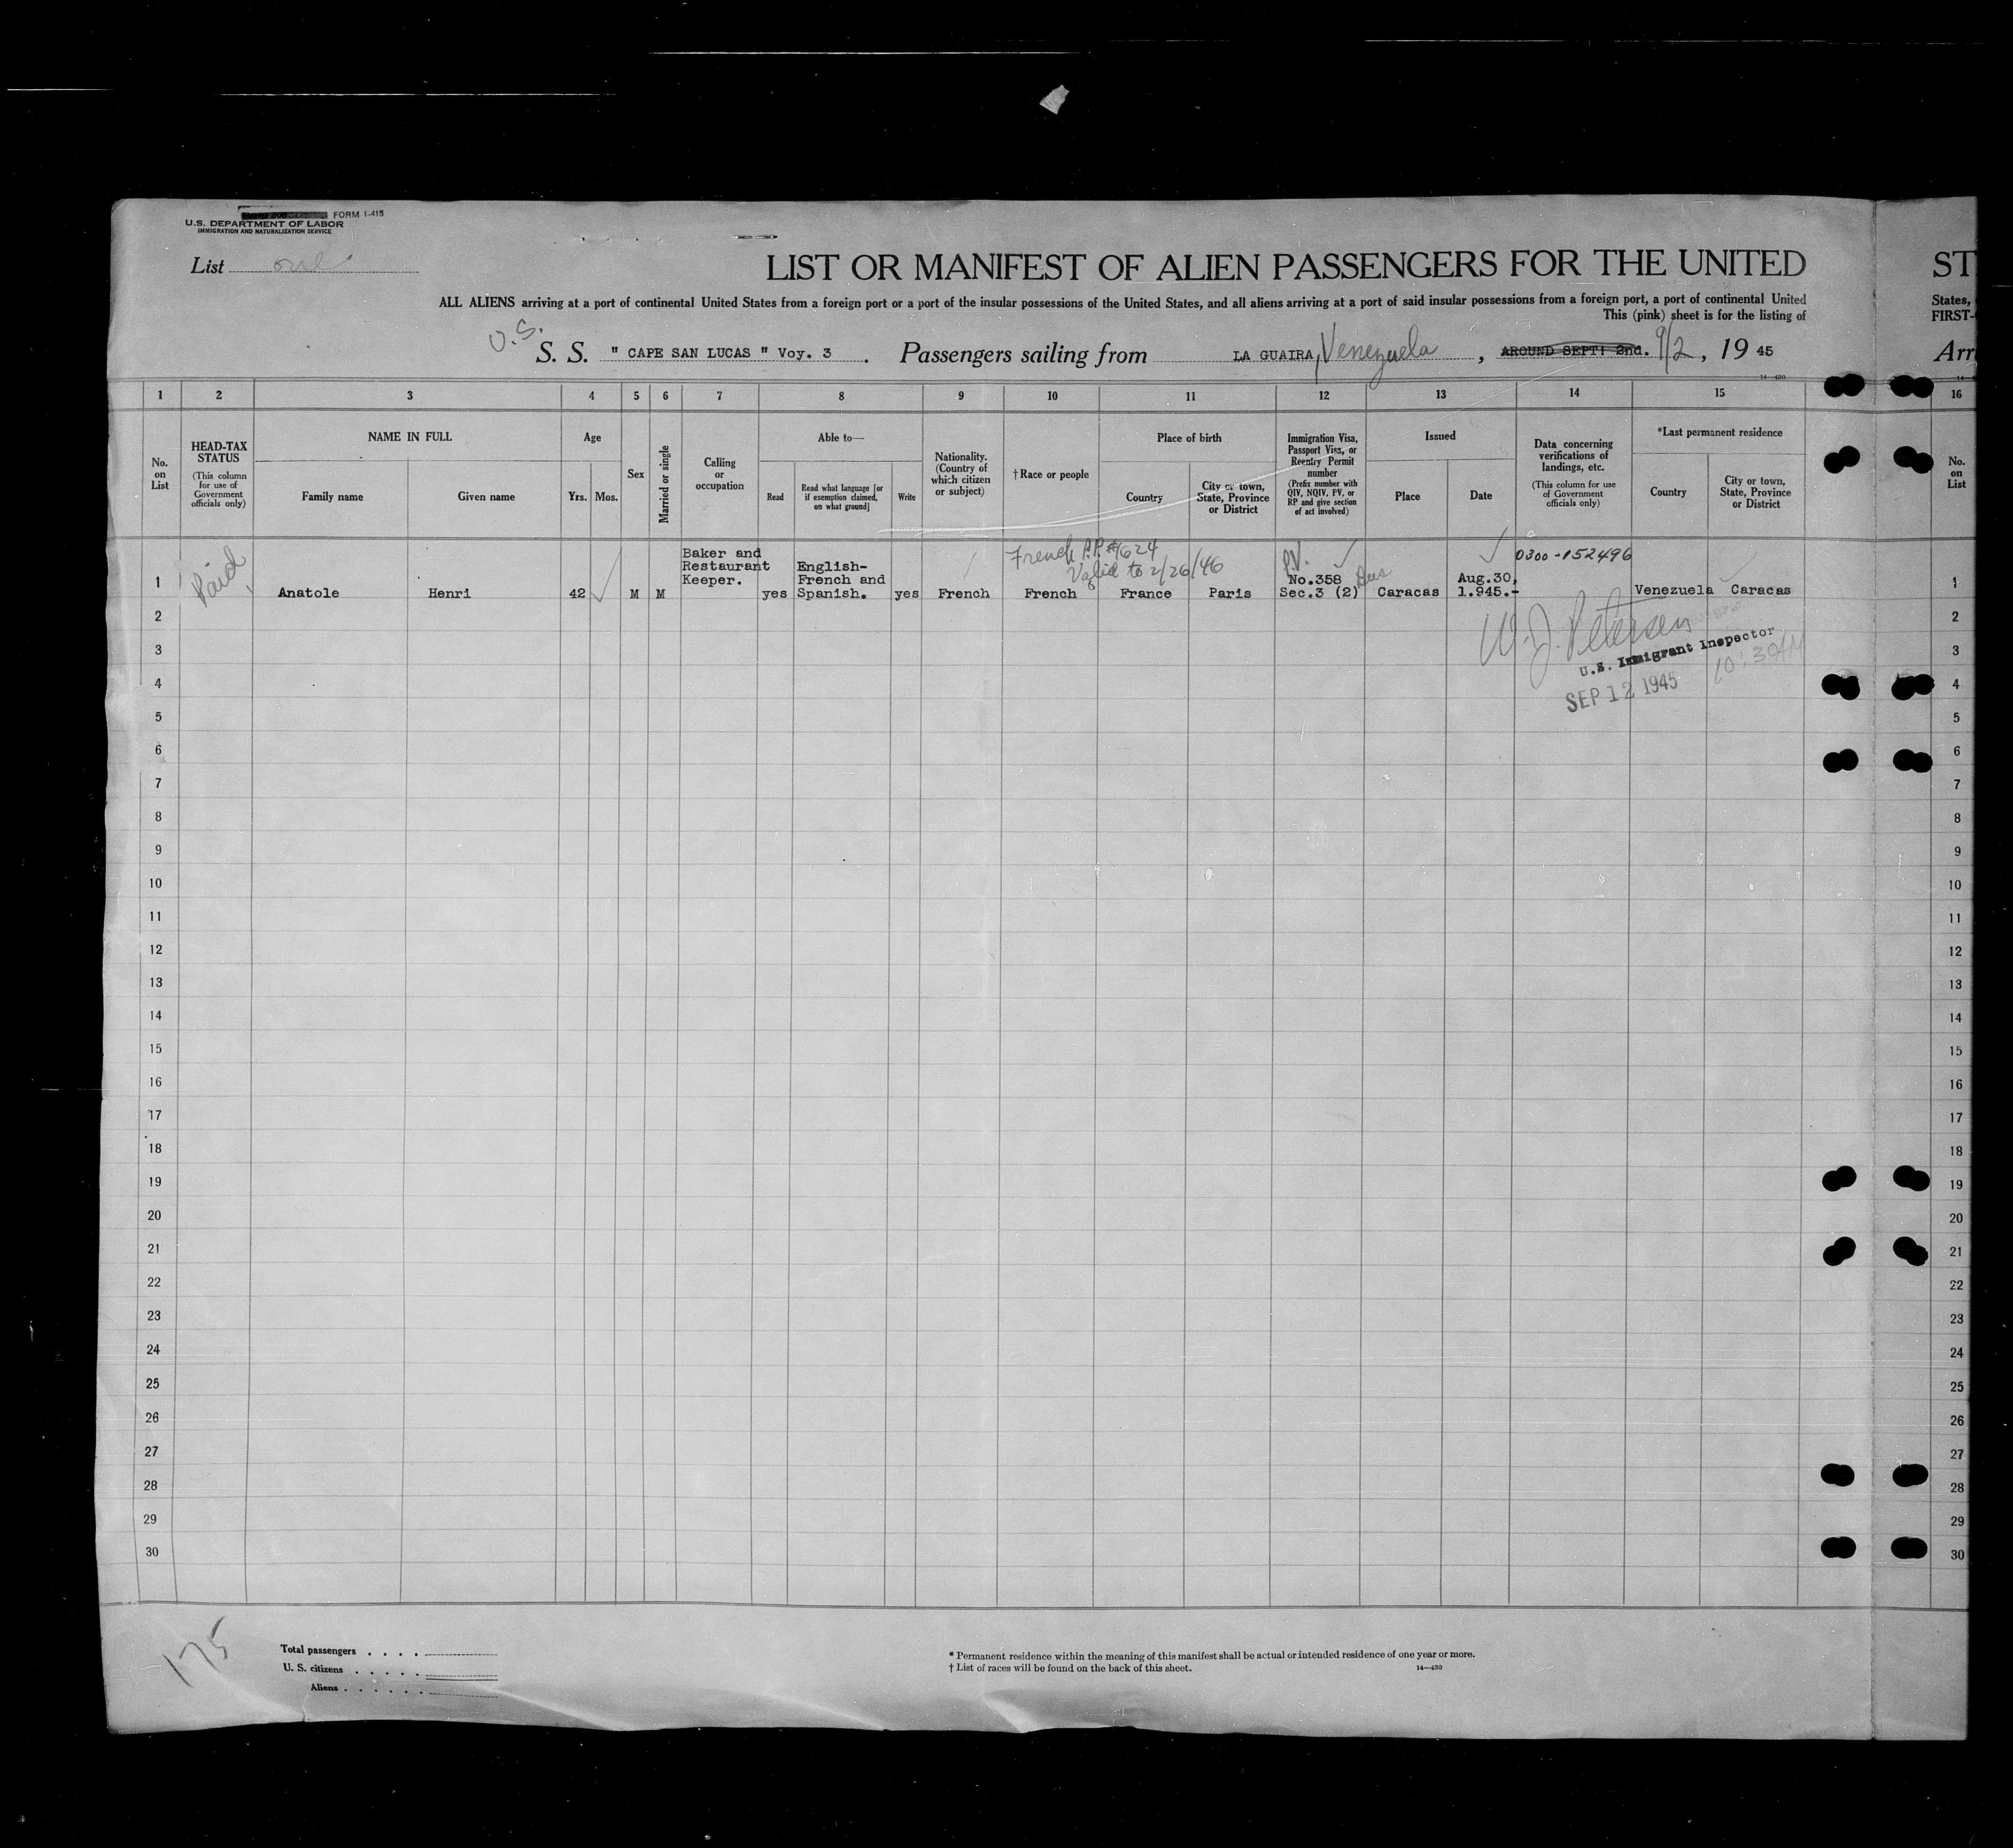 FORM I-415
U.S. DEPARTMENT OF LABOR
IMMIGRATION AND NATURALIZATION SERVICE
List one
LIST OR MANIFEST OF ALIEN PASSENGERS FOR THE UNITED
ST
ALL ALIENS arriving at a port of continental United States from a foreign port or a port of the insular possessions of the United States, and all aliens arriving at a port of said insular possessions from a foreign port, a port of continental United
States,
This (pink) sheet is for the listing of
FIRST-
U.S.
S. S. " CAPE SAN LUCAS " Voy. 3 . Passengers sailing from LA GUAIRA, Venezuela , AROUND SEPT: 2nd. 9/2, 19 45
Arr
14—430
1 2 3 4 5 6 7 8 9 10 11 12 13 14 15 16
No. on List
HEAD-TAX STATUS
(This column for use of Government officials only)
NAME IN FULL
Family name
Given name
Age
Yrs.
Mos.
Sex
Married or single
Calling or occupation
Able to—
Read
Read what language [or if exemption claimed, on what ground]
Write
Nationality. (Country of which citizen or subject)
†Race or people
Place of birth
Country
City or town, State, Province or District
Immigration Visa, Passport Visa, or Reentry Permit number
(Prefix number with QIV, NQIV, PV, or RP and give section of act involved)
Issued
Place
Date
Data concerning verifications of landings, etc.
(This column for use of Government officials only)
*Last permanent residence
Country
City or town, State, Province or District
No. on List
1
Paid
Anatole
Henri
42
M
M
Baker and
Restaurant
Keeper.
yes
English-
French and
Spanish.
yes
French
French P.P. #1624
Valid to 2/26/46
French
France
Paris
P.V.
No.358
Sec.3 (2)
Bus
Caracas
Aug.30,
1.945.-
0300-152496
Venezuela
Caracas
1
W. J. Petersen
U.S. Immigrant Inspector
10:30AM
SEP 12 1945
2 2
3 3
4 4
5 5
6 6
7 7
8 8
9 9
10 10
11 11
12 12
13 13
14 14
15 15
16 16
17 17
18 18
19 19
20 20
21 21
22 22
23 23
24 24
25 25
26 26
27 27
28 28
29 29
30 30
175
Total passengers . . . .
U. S. citizens . . . . .
Aliens . . . . . .
* Permanent residence within the meaning of this manifest shall be actual or intended residence of one year or more.
† List of races will be found on the back of this sheet.
14—430